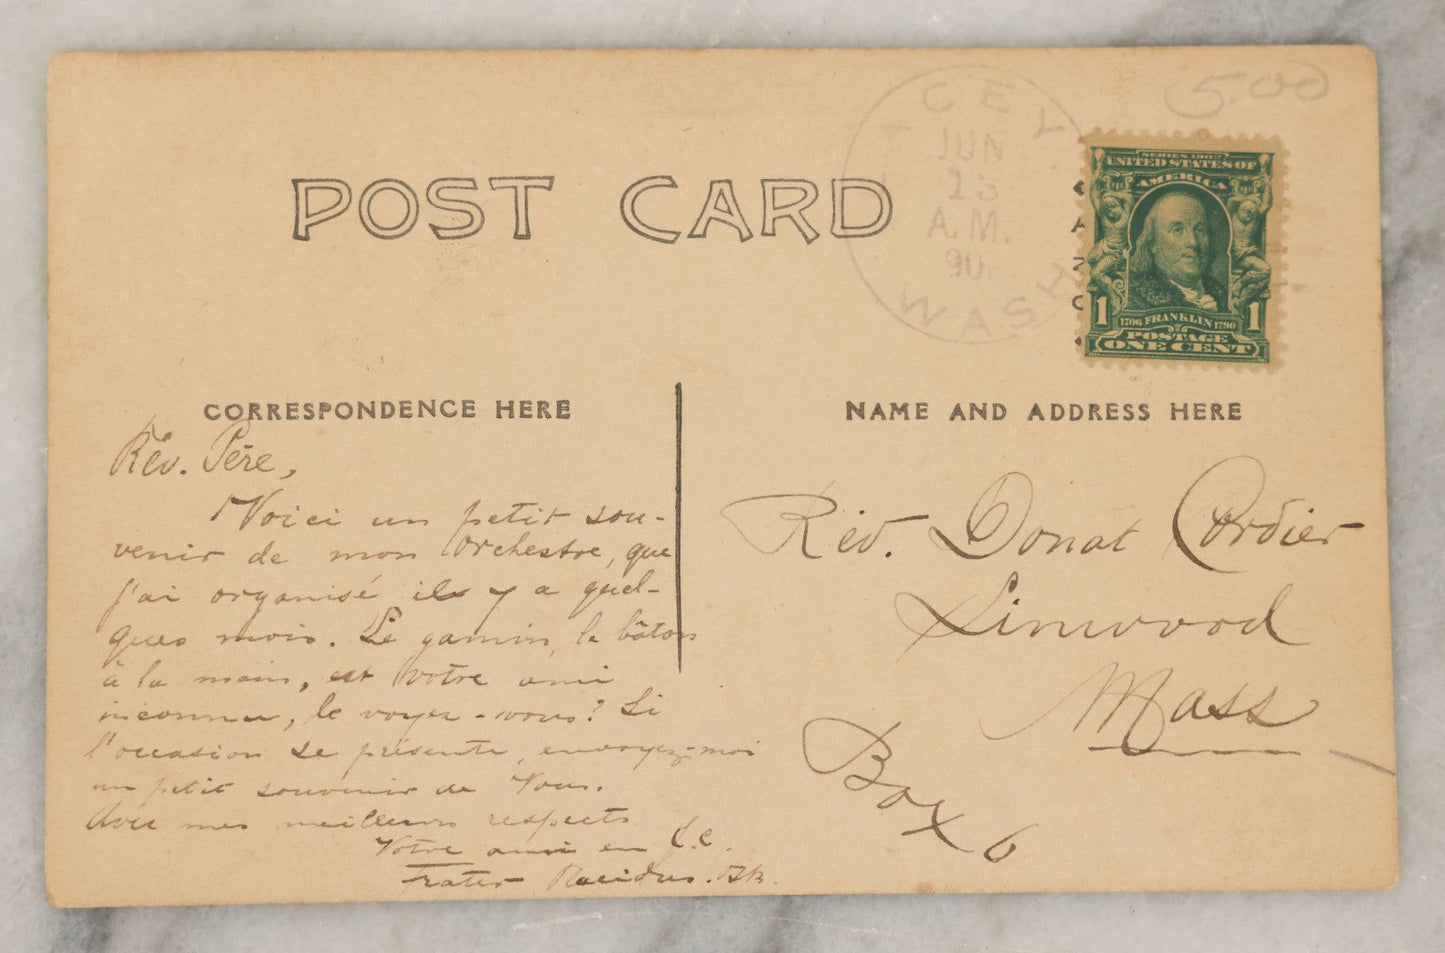 5.00
ACEY
JUN
A.M.
WASH
SERIES 1902
UNITED STATES OF
AMERICA
1 1706 FRANKLIN 1790 1
POSTAGE
ONE CENT
POST CARD
CORRESPONDENCE HERE
Rev. Père,
Voici un petit sou-
venir de mon Orchestre, que
j'ai organisé ils y a quel-
ques mois. Le gamin, le bâton
à la main, est votre ami
inconnu, le voyez-vous? Si
l'occasion se présente, envoyez-moi
un petit souvenir de Vous.
Avec mes meilleurs respects
Votre ami en J.C.
Frater Placidus
NAME AND ADDRESS HERE
Rev. Donat Cordier
Linwood
Mass
Box 6